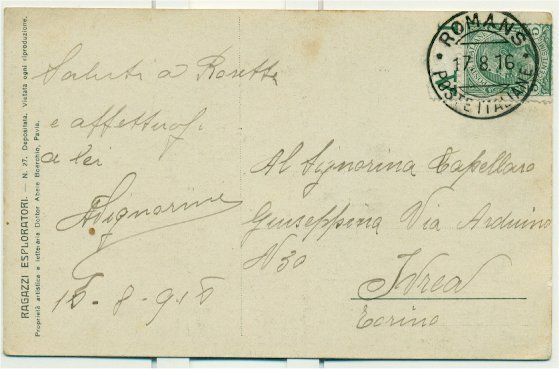 RAGAZZI ESPLORATORI. — N. 27. Depositata. Vietata ogni riproduzione.
Proprietà artistica e letteraria Dottor Boerchio, Pavia.
Saluti a Rosetta
e affettuosi
a lei
15-8-916
ROMANS
17.8.16
POSTE ITALIANE
Al Signorina Capellaro
Giuseppina Via Arduino
N 30
Ivrea
Torino